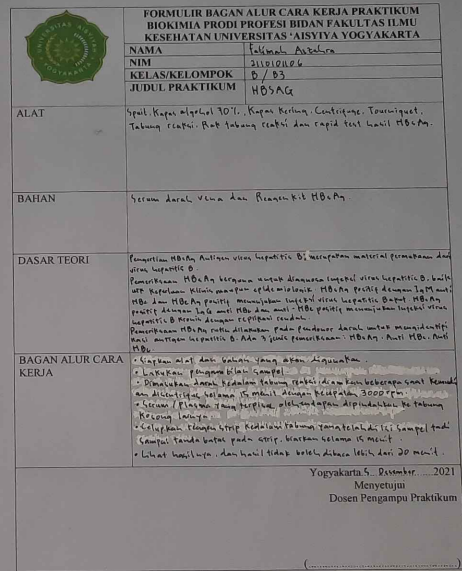 FORMULIR BAGAN ALUR CARA KERJA PRAKTIKUM
BIOKIMIA PRODI PROFESI BIDAN FAKULTAS ILMU
KESEHATAN UNIVERSITAS 'AISYIYA YOGYAKARTA
NAMA Fatimah Azzahra
NIM 2110101106
KELAS/KELOMPOK B / B3
JUDUL PRAKTIKUM HBSAG
ALAT
Spuit, Kapas alkohol 70%, Kapas Kering, Centrifuge, Tourniquet,
Tabung reaksi, Rak tabung reaksi dan rapid test hasil HBsAg.
BAHAN
Serum darah vena dan Reagen Kit HBsAg.
DASAR TEORI
Pengertian HBsAg Antigen virus hepatitis B, merupakan material permukaan dari
virus hepatitis B.
Pemeriksaan HBsAg berguna untuk diagnosa infeksi virus hepatitis B, baik
utk keperluan klinis maupun epidemiologik. HBsAg positif dengan IgM anti
HBc dan HBeAg positif menunjukan infeksi virus hepatitis B akut. HBsAg
positif dengan IgG anti HBc dan anti-HBe positif menunjukan infeksi virus
hepatitis B kronis dengan replikasi rendah.
Pemeriksaan HBsAg rutin dilakukan pada pendonor darah untuk mengidentifi
kasi antigen hepatitis B. Ada 3 jenis pemeriksaan: HBsAg, Anti HBs, Anti
HBc
BAGAN ALUR CARA
KERJA
• Siapkan alat dan bahan yang akan digunakan.
• Lakukan pengambilan sampel
• Dimasukan darah kedalam tabung reaksi, diamkan beberapa saat kemudi
an dicentrifuge selama 15 menit dengan kecepatan 3000 rpm.
• Serum / plasma yang terpisah oleh endapan dipindahkan ke tabung
kosong lainya
• Celupkan reagen strip kedalam tabung yang telah di isi sampel tadi
sampai tanda batas pada strip, biarkan selama 15 menit.
• Lihat hasilnya, dan hasil tidak boleh dibaca lebih dari 20 menit.
Yogyakarta, 5 Desember 2021
Menyetujui
Dosen Pengampu Praktikum